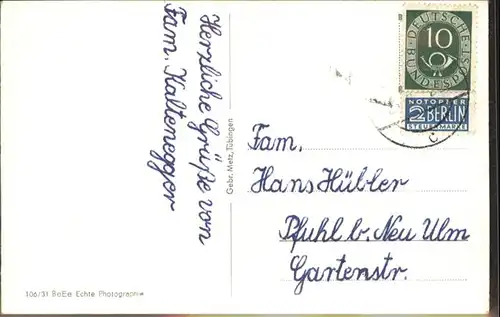 Herzliche Grüße von
Fam. Kaltenegger
Gebr. Metz, Tübingen
106/31 BeEe Echte Photographie
DEUTSCHE
BUNDESPOST
10
NOTOPFER
2 BERLIN
STEUERMARKE
C
Fam.
Hans Hübler
Pfuhl b. Neu Ulm
Gartenstr.